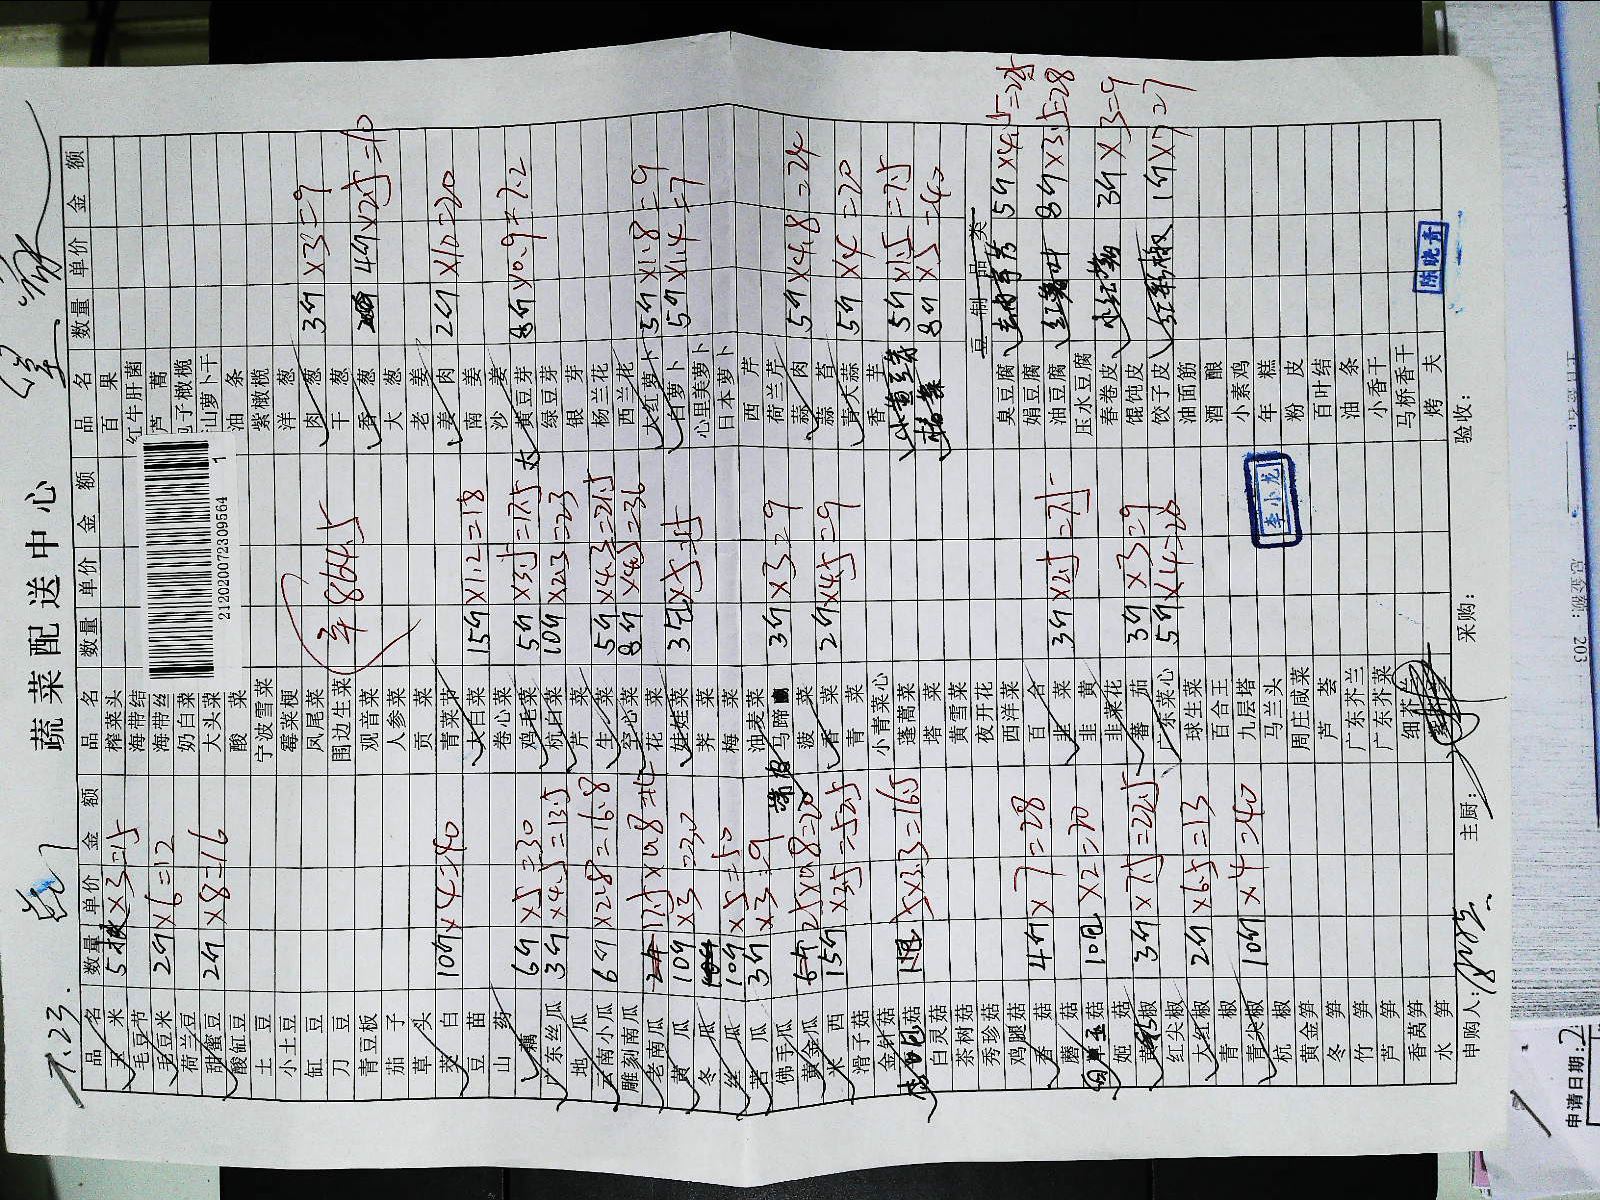 蔬菜配送中心
7.23.
品名 数量 单价 金额 品名 数量 单价 金额 品名 数量 单价 金额
玉米 5根×3=15 榨菜头 百果
毛豆节 海带结 红牛肝菌
毛豆米 2斤×6=12 海带丝 芦蒿
荷兰豆 奶白菜 包子橄榄
甜蜜豆 2斤×8=16 大头菜 山萝卜干
酸缸豆 酸菜 油条
土豆 宁波雪菜 紫橄榄
小土豆 霉菜梗 洋葱
缸豆 凤尾菜 肉葱 3斤×3=9
刀豆 围边生菜 干葱
青豆板 观音菜 香葱 4斤×2.5=10
茄子 人参菜 大葱
草头 贡菜 老姜
茭白 10斤×4=40 青菜节 姜肉 2斤×10=20
豆苗 大白菜 15斤×1.2=18 南姜
山药 卷心菜 沙姜
藕 6斤×5=30 鸡毛菜 5斤×3.5=17.5 黄豆芽 8斤×0.9=7.2
广东丝瓜 3斤×4.5=13.5 杭白菜 10斤×2.3=23 绿豆芽
地瓜 芹菜 银芽
云南小瓜 6斤×2.8=16.8 生菜 5斤×4.3=21.5 杨兰花
雕刻南瓜 空心菜 8斤×4.5=36 西兰花
老南瓜 花菜 大红萝卜 5斤×1.8=9
黄瓜 10斤×3=30 娃娃菜 3包×5=15 白萝卜 5斤×1.4=7
冬瓜 荠菜 心里美萝卜
丝瓜 10斤×5=50 梅菜 日本萝卜
苦瓜 3斤×3=9 油麦菜 西芹
佛手瓜 马蹄 3斤×3=9 荷兰芹
黄金瓜 25×0.8=20 菠菜 蒜肉 5斤×4.8=24
米西 15斤×3.5=52.5 香菜 2斤×4.5=9 蒜苔
滑子菇 青菜 青大蒜 5斤×4=20
金针菇 小青菜心 香芋
5×3.3=16.5 蓬蒿菜 5斤×1.5=7.5
白灵菇 塔菜 8斤×5=40
茶树菇 黄雪菜
秀珍菇 夜开花 豆制品类
鸡腿菇 西洋菜 臭豆腐 5斤×4.5=22.5
香菇 4斤×7=28 百合 娟豆腐
蘑菇 韭菜 3斤×2.5=7.5 油豆腐 红薯叶 8斤×3.5=28
10包×2=20 韭黄 压水豆腐
姬菇 韭菜花 春卷皮 3斤×3=9
3斤×7.5=22.5 蕃茄 3斤×3=9 馄饨皮
红尖椒 广东菜心 5斤×4=20 饺子皮 红彩椒 1斤×7=7
大红椒 2斤×6.5=13 球生菜 油面筋
青椒 百合王 酒酿
青尖椒 10斤×4=40 九层塔 小素鸡
杭椒 马兰头 年糕
黄金笋 周庄咸菜 粉皮
冬笋 芦荟 百叶结
竹笋 广东芥兰 油条
芦笋 广东芥菜 小香干
香莴笋 细芥兰 马桥香干
水笋 烤夫
平864.5
212020072309564
1
李小龙
陈晓青
申购人: 主厨: 采购: 验收:
申请日期:2